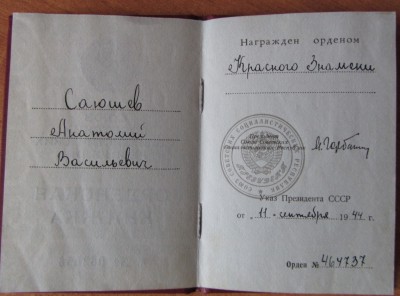 Саюшев
Анатолий
Васильевич
Награжден орденом
Красного Знамени
М. Горбачев
Указ Президента СССР
от „11" сентября 1944 г.
Орден № 464737